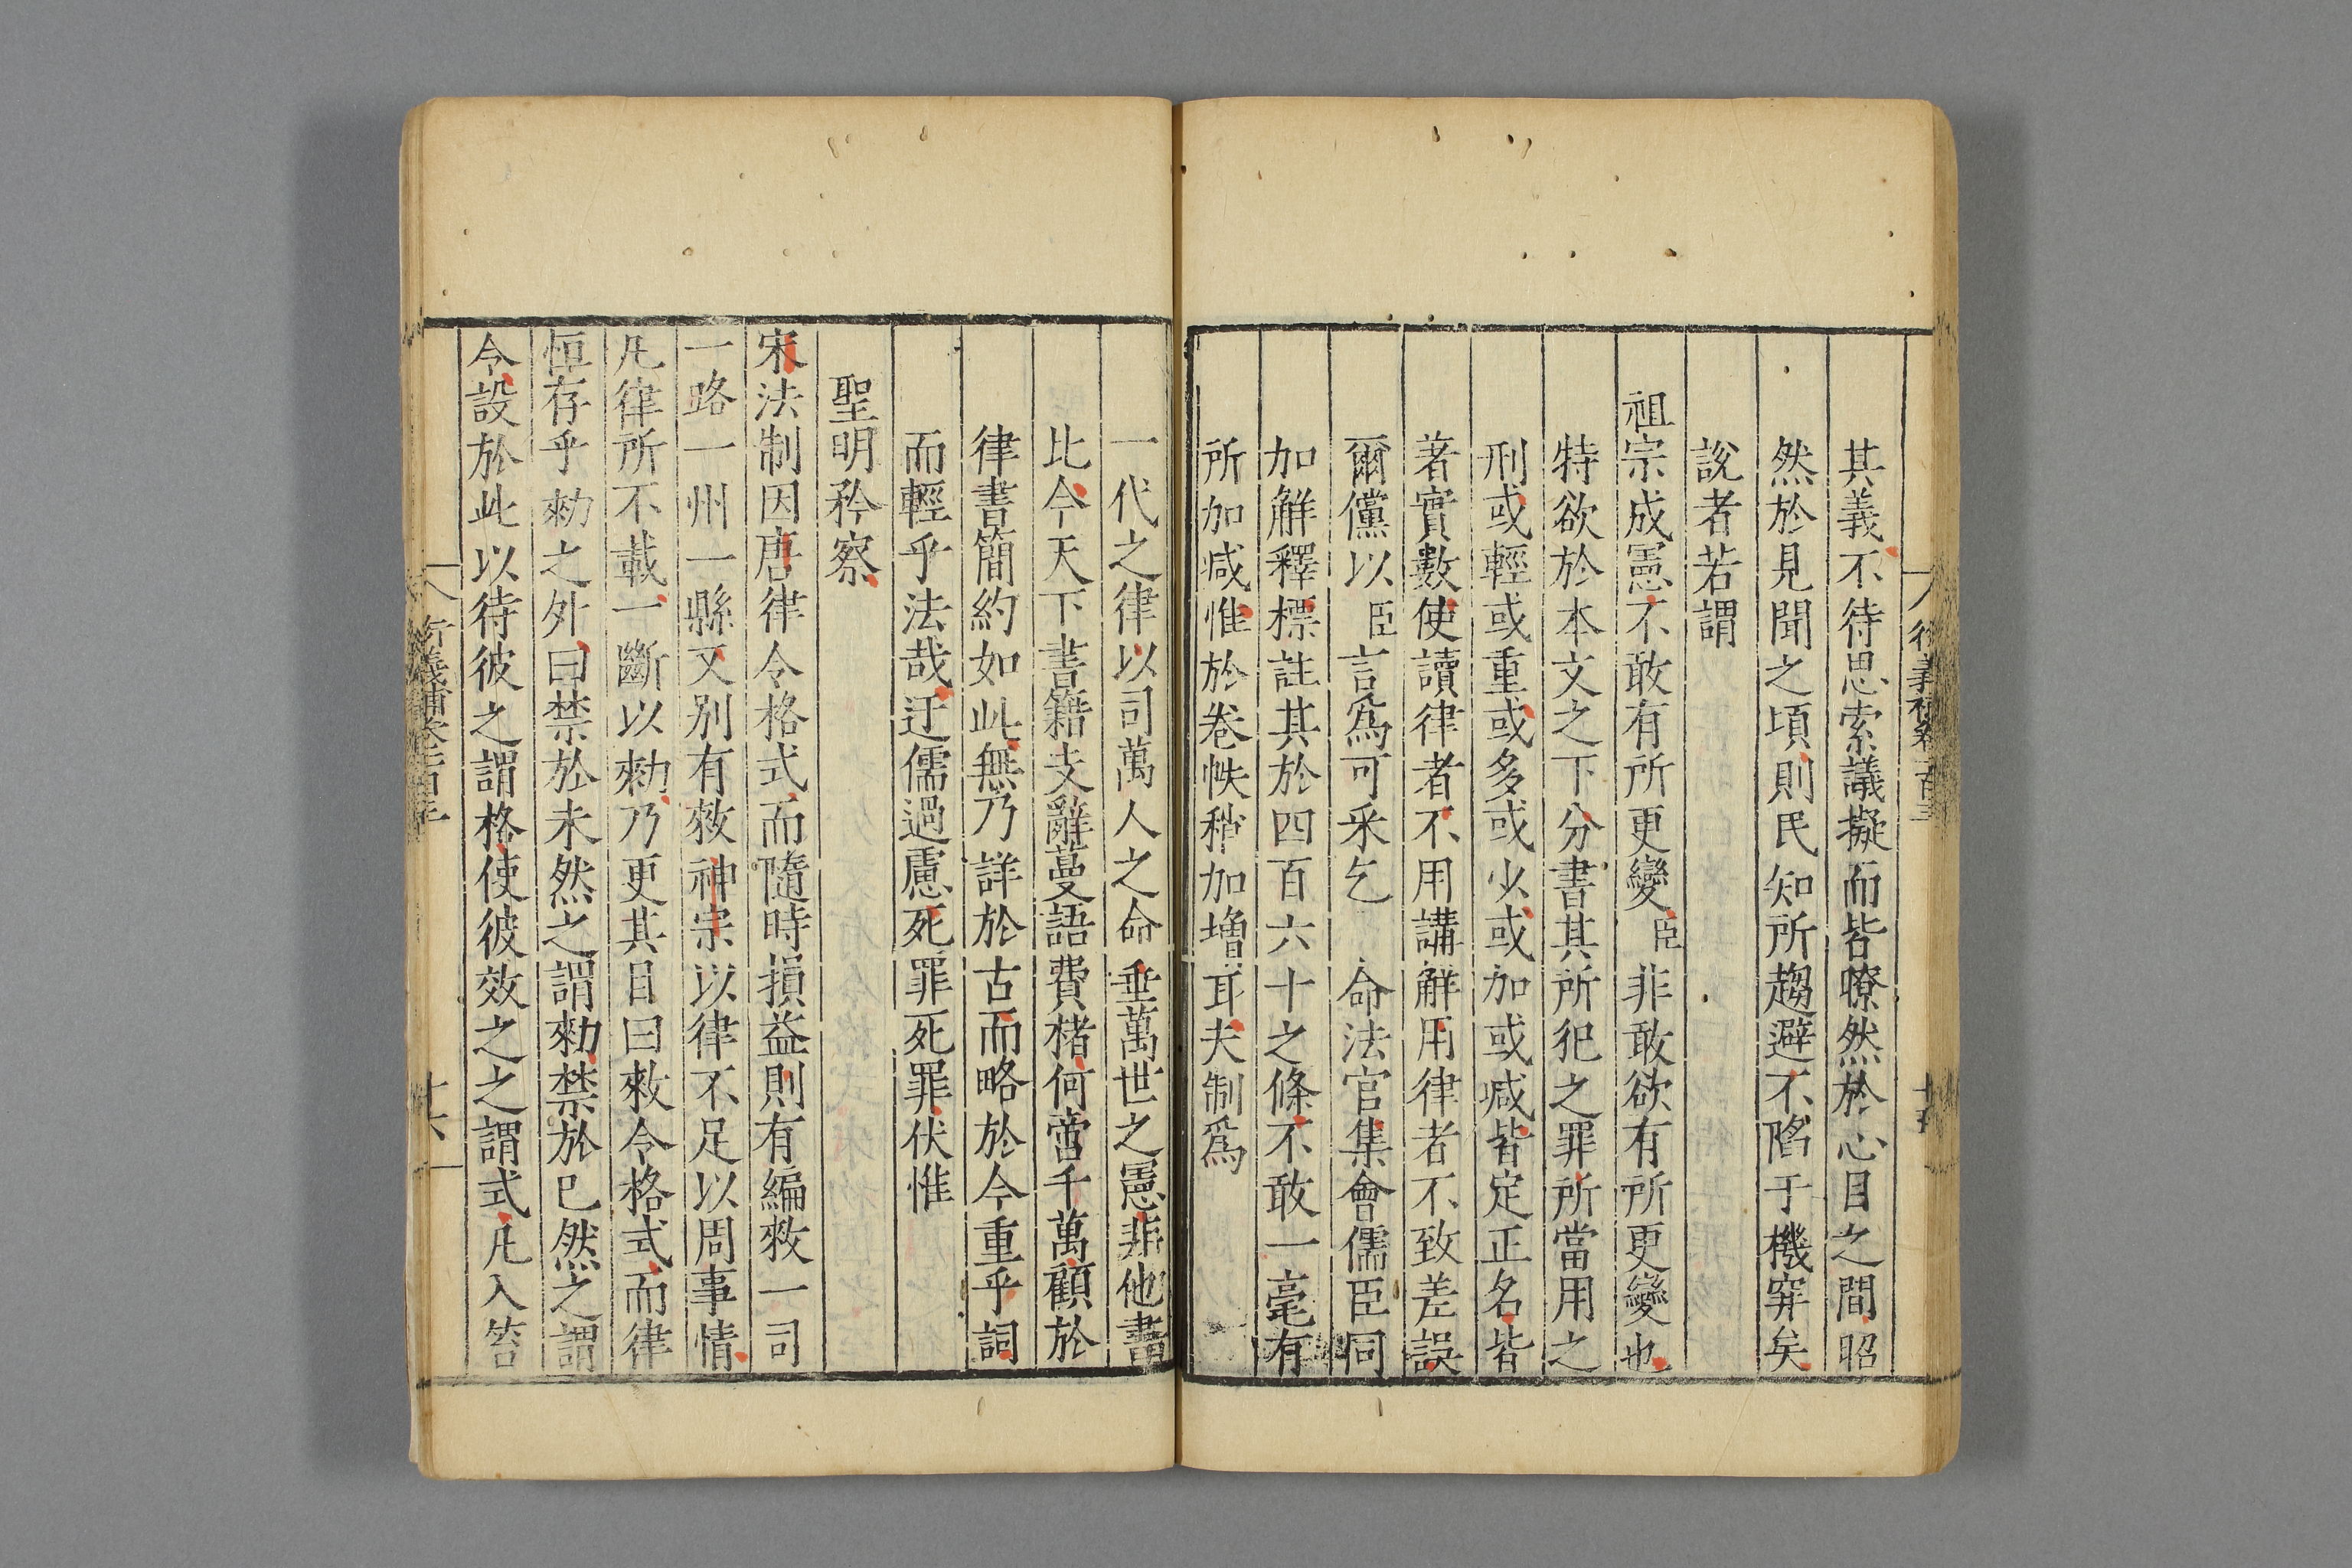 其義不待思索議擬而皆瞭然於心目之間昭
然於見聞之頃則民知所趨避不陷于機穽矣
說者若謂
祖宗成憲不敢有所更變臣非敢欲有所更變也
特欲於本文之下分書其所犯之罪所當用之
刑或輕或重或多或少或加或减皆定正名皆
著實數使讀律者不用講解用律者不致差誤
爾儻以臣言爲可采乞命法官集會儒臣同
加解釋標註其於四百六十之條不敢一毫有
所加减惟於卷帙稍加增耳夫制爲
一代之律以司萬人之命垂萬世之憲非他書
比今天下書籍支辭蔓語費楮何啻千萬顧於
律書簡約如此無乃詳於古而略於今重乎詞
而輕乎法哉迂儒過慮死罪死罪伏惟
聖明矜察
宋法制因唐律令格式而隨時損益則有編敕一司
一路一州一縣又别有敕神宗以律不足以周事情
凡律所不載一斷以勑乃更其目曰敕令格式而律
恒存乎勑之外曰禁於未然之謂勑禁於已然之謂
令設於此以待彼之謂格使彼效之之謂式凡入笞
衍義補卷一百三
十六